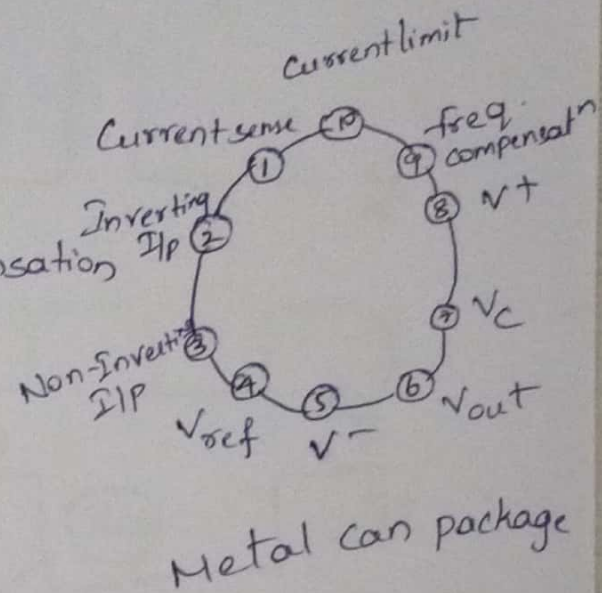 Current limit
Current sense
10
freq.
compensatn
1
9
Inverting
I/p
2
8
V+
sation
7
Vc
Non-Inverting
I/P
3
4
5
6
Vout
Vref
V-
Metal can package